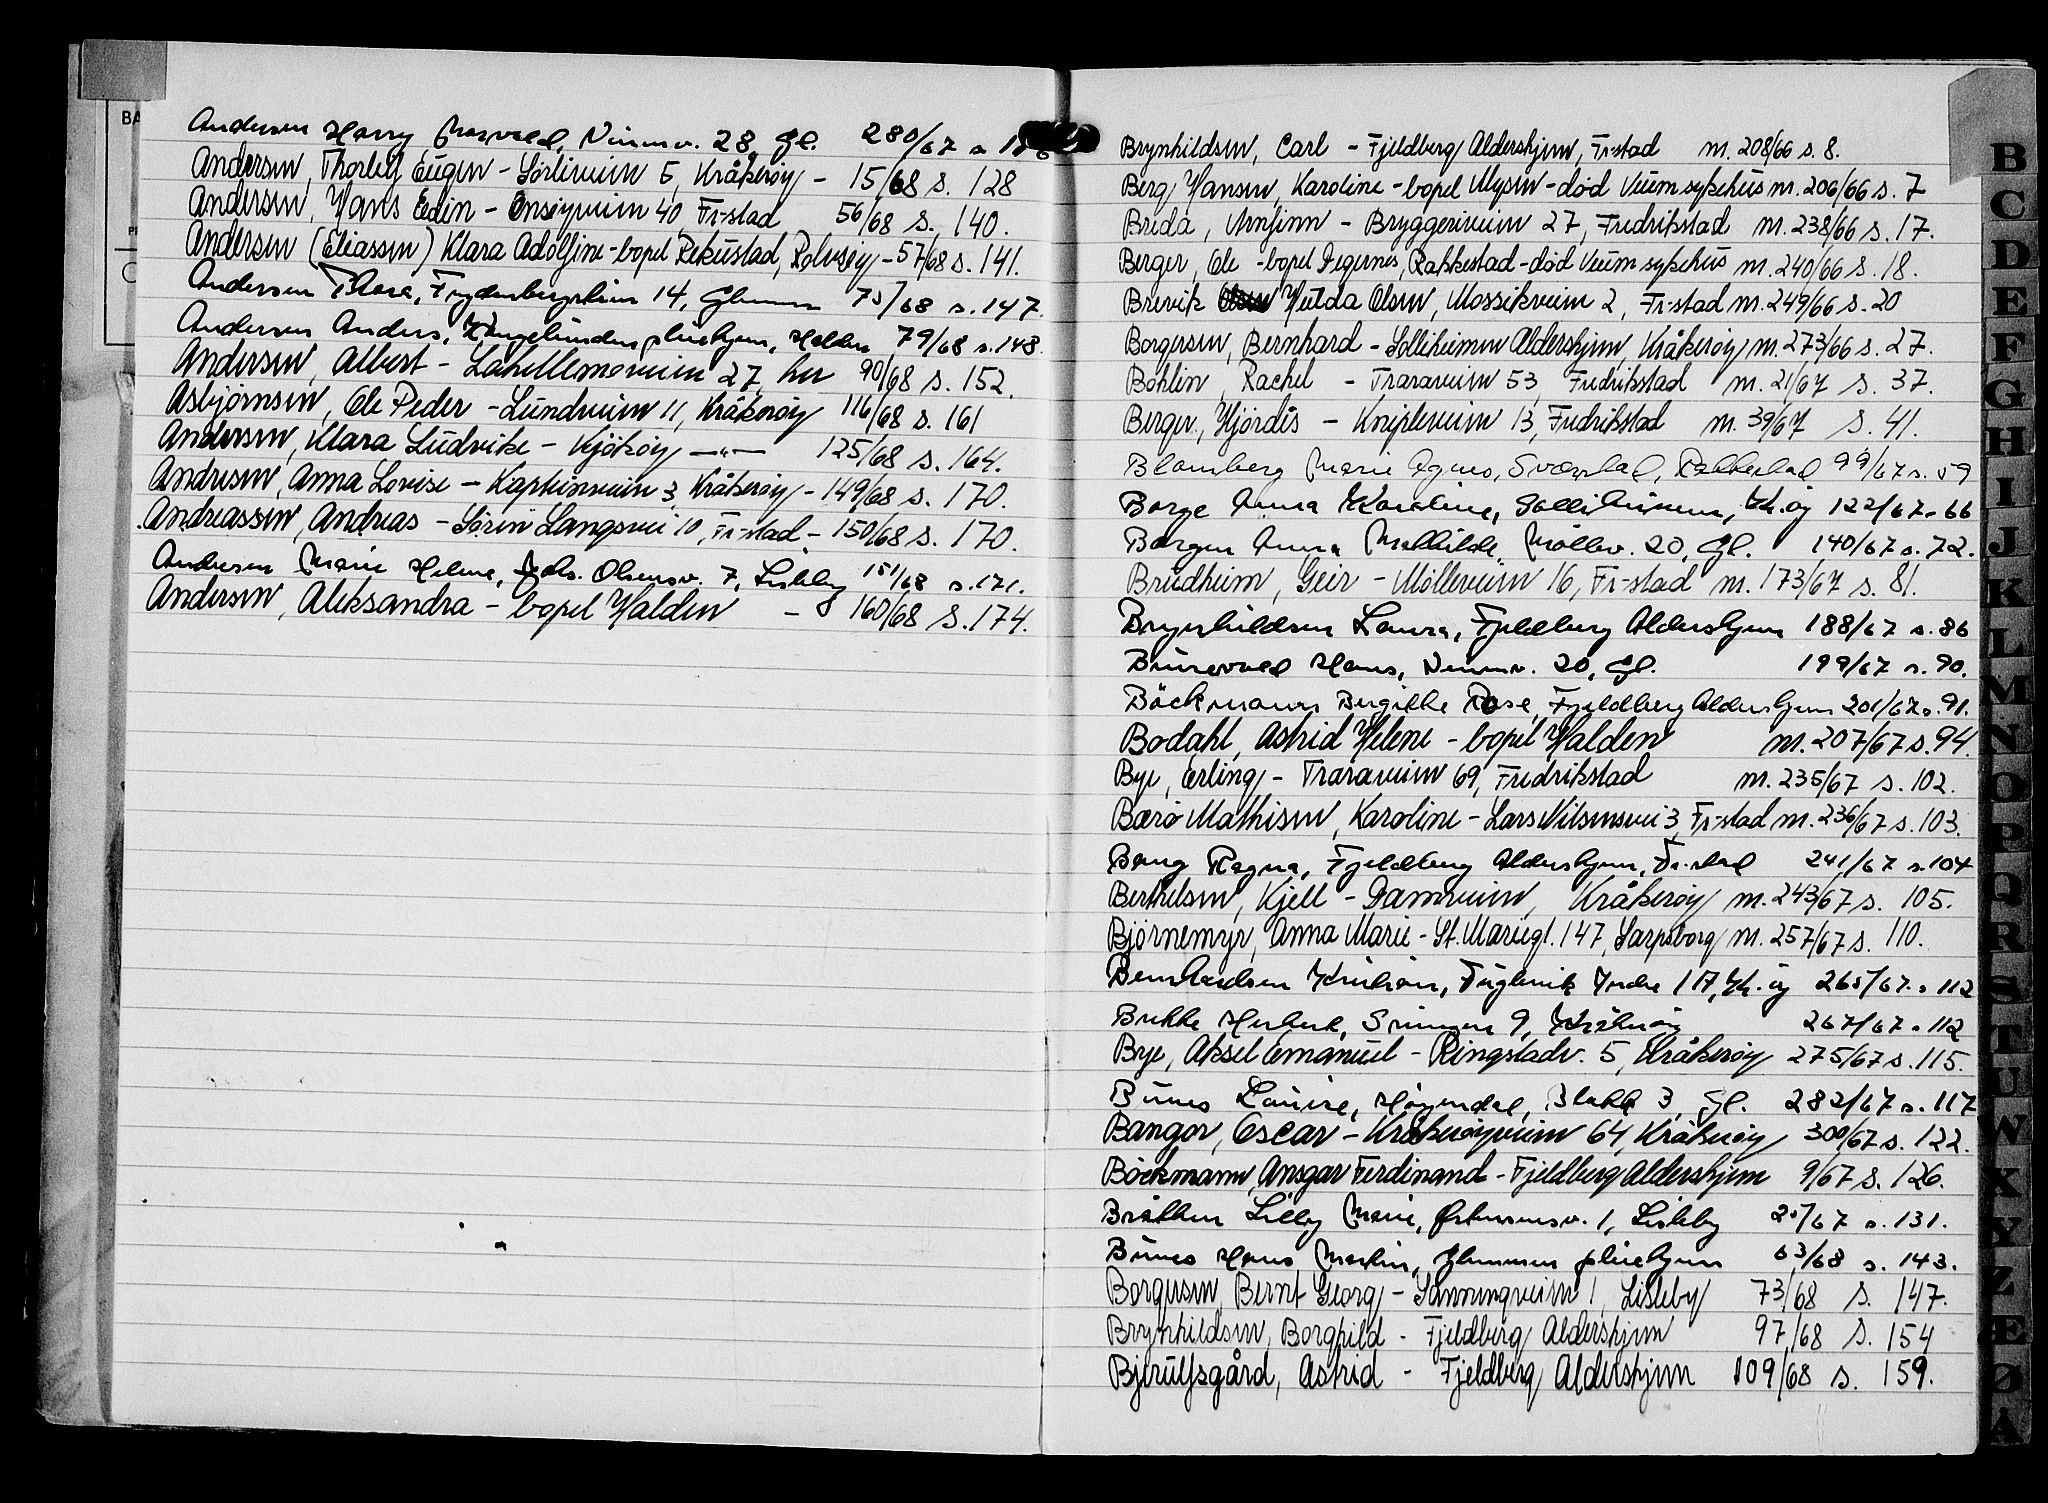 BA
Andersen Harry Marvald, Nissens v. 28, Gl. 280/67 s. 116
Andersen, Thorleif Eugen - Sörliveien 5, Kråkeröy - 15/68 s. 128
Andersen, Hans Edin - Onsöyveien 40, Fr-stad 56/68 s. 140.
Andersen (Eliassen) Klara Adolfine - bopel Rekustad, Rolvsöy - 57/68 s. 141.
Andersen Thora, Frydenbergveien 14, Glemmen 75/68 s. 147.
Andersen Anders, pleiehjem, Halden 79/68 s. 148.
Andersen, Albert - Lahellemoveien 27, her 90/68 s. 152.
Asbjörnsen, Ole Peder - Lundveien 11, Kråkeröy 116/68 s. 161
Andersen, Klara Ludvike - Kjököy —"— 125/68 s. 164.
Andresen, Anna Lovise - Kapteinveien 3, Kråkeröy - 149/68 s. 170.
Andreassen, Andreas - Sören Langsvei 10, Fr-stad - 150/68 s. 170.
Andersen Marie Helene, Johs. Olsensv. 7, Lisleby 151/68 s. 171.
Andersen, Aleksandra - bopel Halden - 160/68 s. 174.
Brynhildsen, Carl - Fjeldberg Aldershjem, Fr-stad nr. 208/66 s. 8.
Berg Hansen, Karoline - bopel Mysen - död Veum sykehus nr. 206/66 s. 7
Breda, Arnfinn - Bryggeriveien 27, Fredrikstad nr. 238/66 s. 17.
Berger, Ole - bopel Degernes, Rakkestad - död Veum sykehus nr. 240/66 s. 18.
Brevik Hulda Olsen, Mosseikveien 2, Fr-stad nr. 249/66 s. 20
Borgersen, Bernhard - Solliheimen Aldershjem, Kråkeröy nr. 273/66 s. 27.
Böhlin, Rachel - Traraveien 53, Fredrikstad nr. 21/67 s. 37.
Berger, Hjördis - Knipleveien 13, Fredrikstad nr. 39/67 s. 41.
Blomberg Marie Agnes, Rakkestad 99/67 s. 59
Borge Anna Karoline, Solliheimen, Kr.öy 122/67 - 66
Borgen Anna Mathilde, Möllev. 20, Gl. 140/67 s. 72.
Brudheim, Geir - Mölleveien 16, Fr-stad nr. 173/67 s. 81.
Brynhildsen Laura, Fjeldberg Aldershjem 188/67 s. 86
Hans, 20, Gl. 199/67 s. 90.
Böckmann Birgitte Rose, Fjeldberg Aldershjem 201/67 s. 91.
Bodahl, Astrid Helene - bopel Halden nr. 207/67 s. 94.
Bye, Erling - Traraveien 69, Fredrikstad nr. 235/67 s. 102.
Bærö Mathisen, Karoline - Lars Nilsensvei 3, Fr-stad nr. 236/67 s. 103.
Bang Ragna, Fjeldberg Aldershjem, Fr.stad 241/67 s. 104
Berthelsen, Kjell - Damveien, Kråkeröy nr. 243/67 s. 105.
Björnemyr, Anna Marie - St. Mariegt. 147, Sarpsborg nr. 257/67 s. 110.
Bernhardsen Kristian, Fuglevik Indre 117, Kr.öy 265/67 s. 112
Bekke Herbert, 9, Kråkeröy 267/67 s. 112
Bye, Aksel Emanuel - Ringstadv. 5, Kråkeröy 275/67 s. 115.
Bunes Louise, Haugendal, Blokk 3, Gl. 282/67 s. 117
Bangor, Oscar - Kråkeröyveien 64, Kråkeröy 300/67 s. 122.
Böckmann, Ansgar Ferdinand - Fjeldberg Aldershjem 9/67 s. 126.
Bråthen Lilly Marie, 1, Lisleby 20/67 s. 131.
Bunes Hans Martin, Glemmen pleiehjem 63/68 s. 143.
Borgersen, Bernt Georg - 1, Lisleby 73/68 s. 147.
Brynhildsen, Borghild - Fjeldberg Aldershjem 97/68 s. 154
Bjerulfsgård, Astrid - Fjeldberg Aldershjem 109/68 s. 159.
B
C
D
E
F
G
H
I
J
K
L
M
N
O
P
Q
R
S
T
U
W
X
Y
Z
Æ
Ø
Å